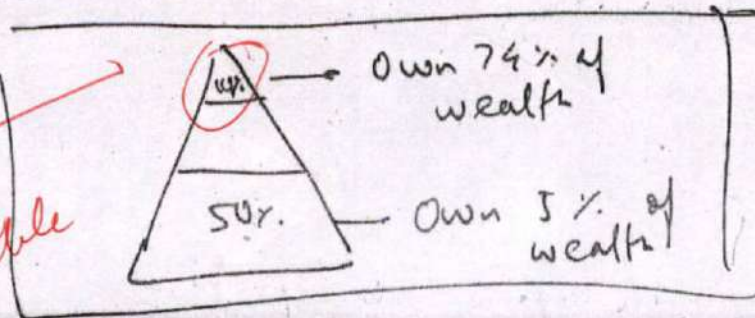 10%
Own 74% of
wealth
50%.
Own 5% of
wealth